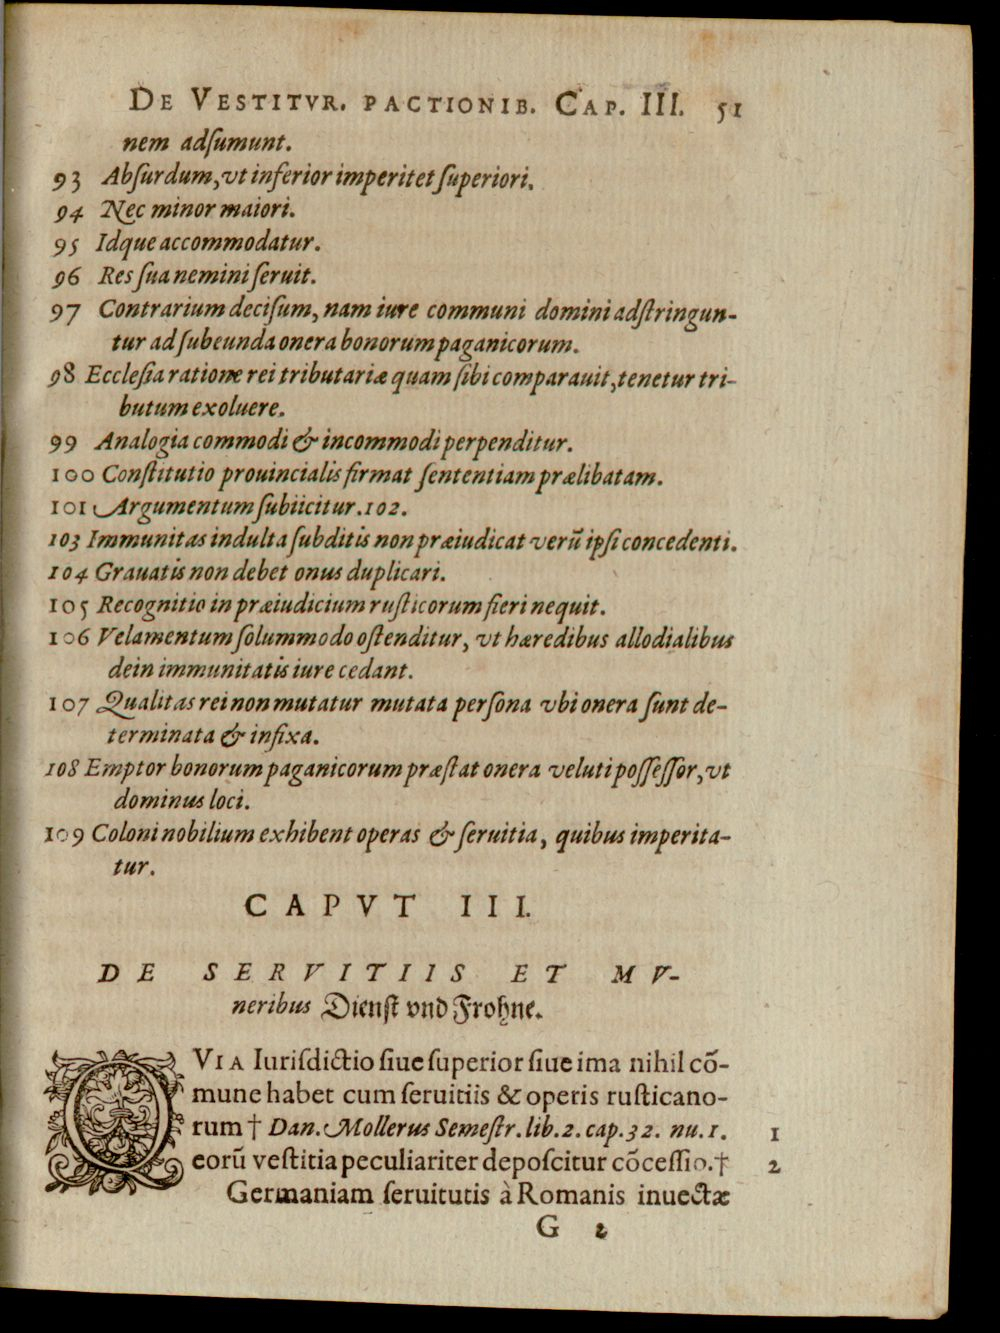 DE VESTITVR. PACTIONIB. CAP. III. 51
nem adſumunt.
93 Abſurdum, vt inferior imperitet ſuperiori.
94 Nec minor maiori.
95 Idque accommodatur.
96 Res ſua nemini ſeruit.
97 Contrarium deciſum, nam iure communi domini adſtringun-
tur ad ſubeunda onera bonorum paganicorum.
98 Eccleſia ratione rei tributariæ quam ſibi comparauit, tenetur tri-
butum exoluere.
99 Analogia commodi & incommodi perpenditur.
100 Conſtitutio prouincialis firmat ſententiam prælibatam.
101 Argumentum ſubiicitur. 102.
103 Immunitas indulta ſubditis non præiudicat verũ ipſi concedenti.
104 Grauatis non debet onus duplicari.
105 Recognitio in præiudicium ruſticorum fieri nequit.
106 Velamentum ſolummodo oſtenditur, vt hæredibus allodialibus
dein immunitatis iure cedant.
107 Qualitas rei non mutatur mutata perſona vbi onera ſunt de-
terminata & infixa.
108 Emptor bonorum paganicorum præſtat onera veluti poſſeſſor, vt
dominus loci.
109 Coloni nobilium exhibent operas & ſeruitia, quibus imperita-
tur.
CAPVT III.
DE SERVITIIS ET MV-
neribus Dienſt vnd Frohne.
QVIA Iuriſdictio ſiue ſuperior ſiue ima nihil cõ-
mune habet cum ſeruitiis & operis ruſticano-
rum † Dan. Mollerus Semeſtr. lib. 2. cap. 32. nu. 1. 1
eorũ veſtitia peculiariter depoſcitur cõceſſio. † 2
Germaniam ſeruitutis à Romanis inuectæ
G 2